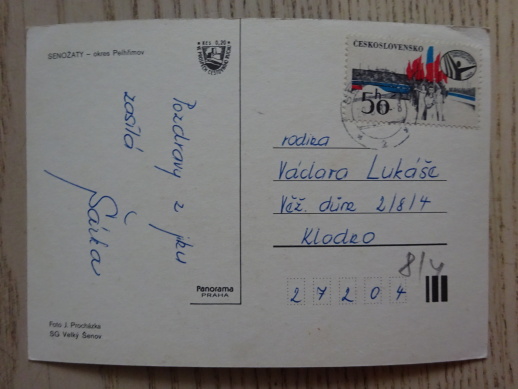 SENOŽATY – okres Pelhřimov
Kčs 0,30
Pozdravy z jku
zasílá
Šárka
ČESKOSLOVENSKO
50 h
rodina
Václava Lukáše
Věž. dům 2/8/4
Kladno
8/4
27204
Panorama
PRAHA
Foto J. Procházka
SG Velký Šenov